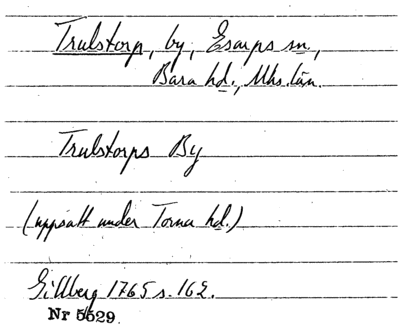 Trulstorp, by, Esarps sn.,
Bara hd., Mhs. län.
Trulstorps By
(uppsatt under Torna hd.)
Gillberg 1765 s. 162.
Nr 5529.